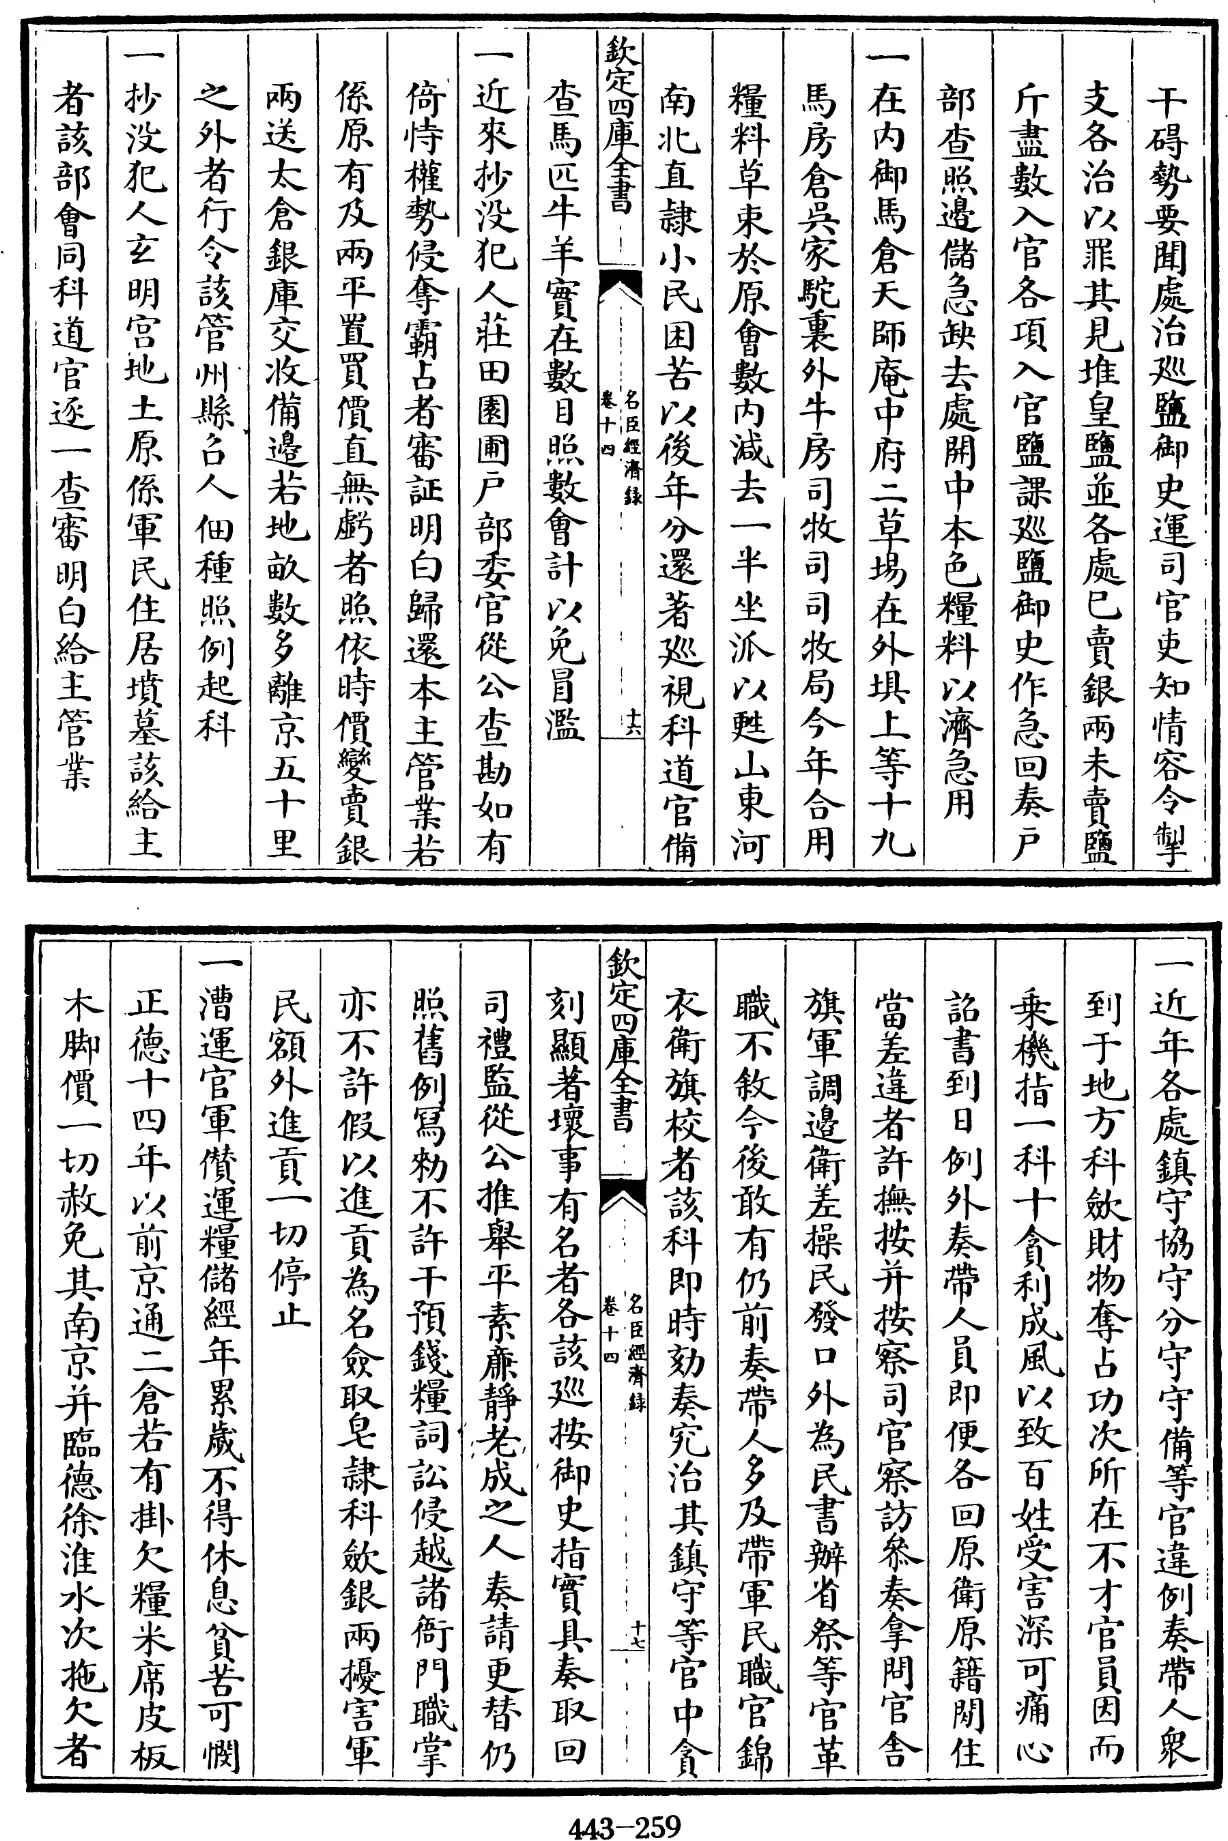 干碍勢要聞處治廵鹽御史運司官吏知情容令掣
支各治以罪其見堆皇鹽並各處已賣銀兩未賣鹽
斤盡數入官各項入官鹽課廵鹽御史作急回奏戸
部查照邊儲急缺去處開中本色糧料以濟急用
一在内御馬倉天師庵中府二草塲在外垻上等十九
馬房倉吳家駝裏外牛房司牧司司牧局今年合用
糧料草束於原會數内減去一半坐派以甦山東河
南北直隷小民困苦以後年分還著廵視科道官備
欽定四庫全書
名臣經濟録
卷十四
十六
查馬匹牛羊實在數目照數會計以免冒濫
一近來抄没犯人莊田園圃戸部委官從公查勘如有
倚恃權勢侵奪霸占者審証明白歸還本主管業若
係原有及兩平置買價直無虧者照依時價變賣銀
兩送太倉銀庫交收備邊若地畝數多離京五十里
之外者行令該管州縣召人佃種照例起科
一抄没犯人玄明宫地土原係軍民住居墳墓該給主
者該部會同科道官逐一查審明白給主管業
一近年各處鎮守協守分守守備等官違例奏帶人衆
到于地方科歛財物奪占功次所在不才官員因而
乗機指一科十貪利成風以致百姓受害深可痛心
詔書到日例外奏帶人員即便各回原衛原籍閒住
當差違者許撫按并按察司官察訪叅奏拿問官舍
旗軍調邊衛差操民發口外為民書辦省祭等官革
職不敘今後敢有仍前奏帶人多及帶軍民職官錦
衣衛旗校者該科即時劾奏究治其鎮守等官中貪
欽定四庫全書
名臣經濟録
卷十四
十七
刻顯著壞事有名者各該廵按御史指實具奏取回
司禮監從公推舉平素亷靜老成之人奏請更替仍
照舊例寫勅不許干預錢糧詞訟侵越諸衙門職掌
亦不許假以進貢為名僉取皂隷科歛銀兩擾害軍
民額外進貢一切停止
一漕運官軍儧運糧儲經年累歲不得休息貧苦可憫
正德十四年以前京通二倉若有掛欠糧米席皮板
木脚價一切赦免其南京并臨德徐淮水次拖欠者
443-259